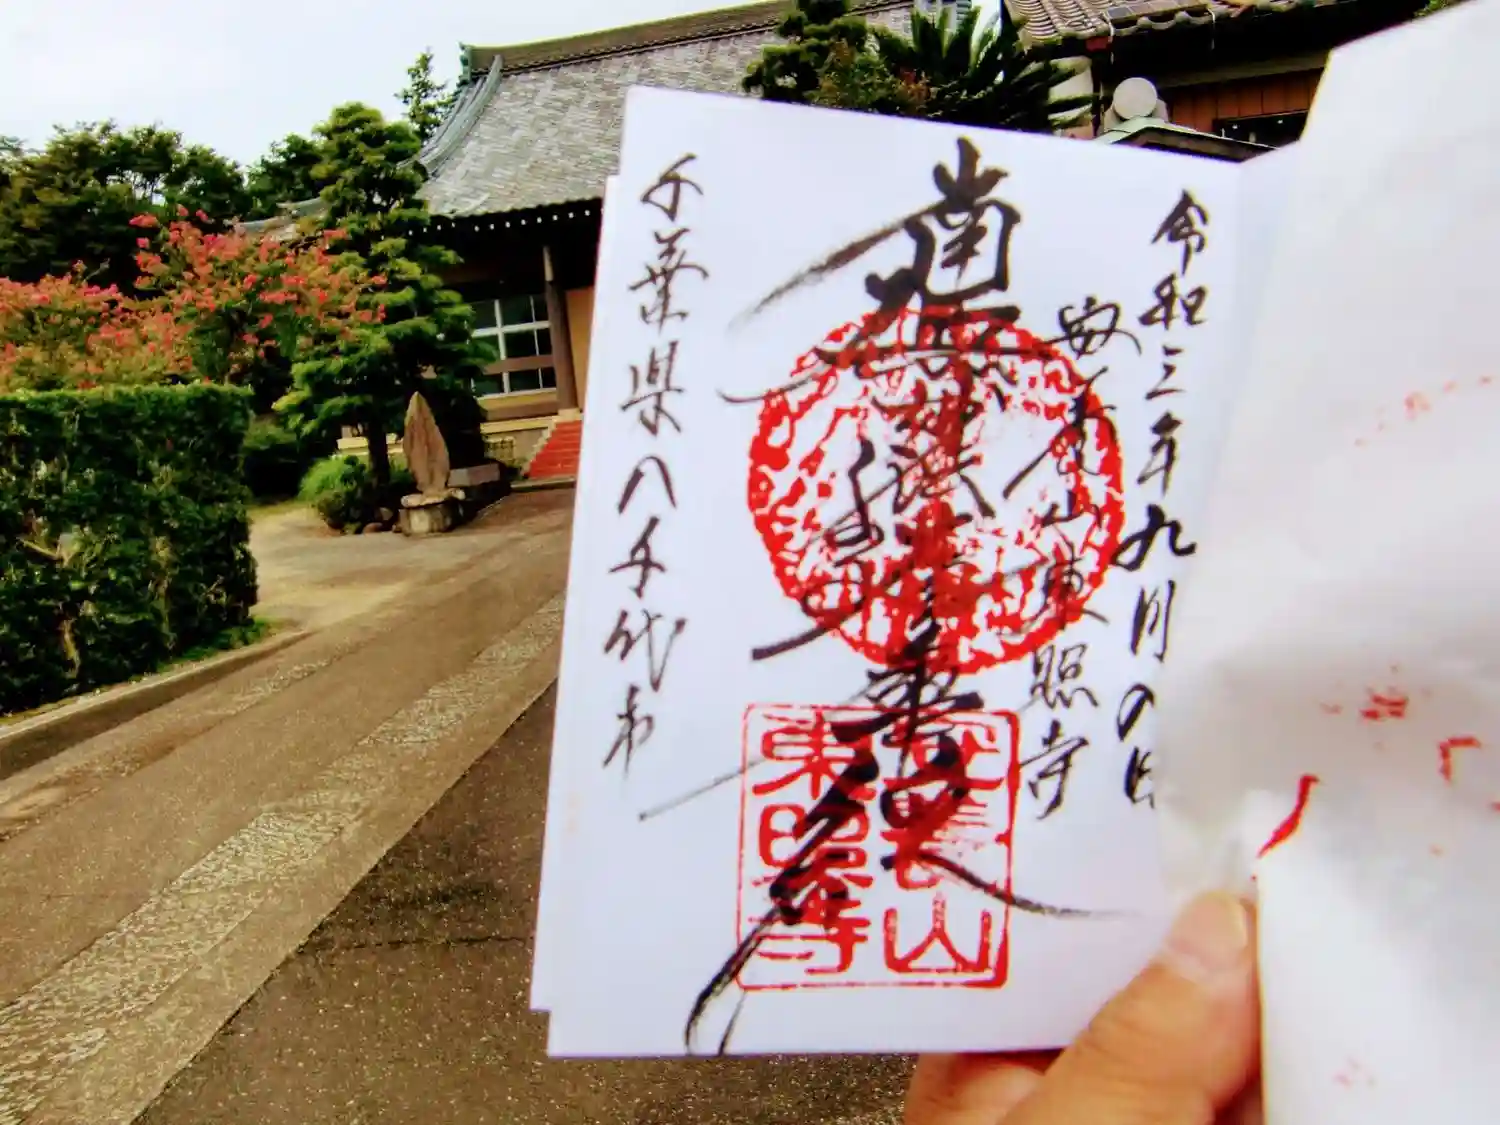 令和三年九月の日
安養山東照寺
南無妙法蓮華経
千葉県八千代市
安養山
東照寺